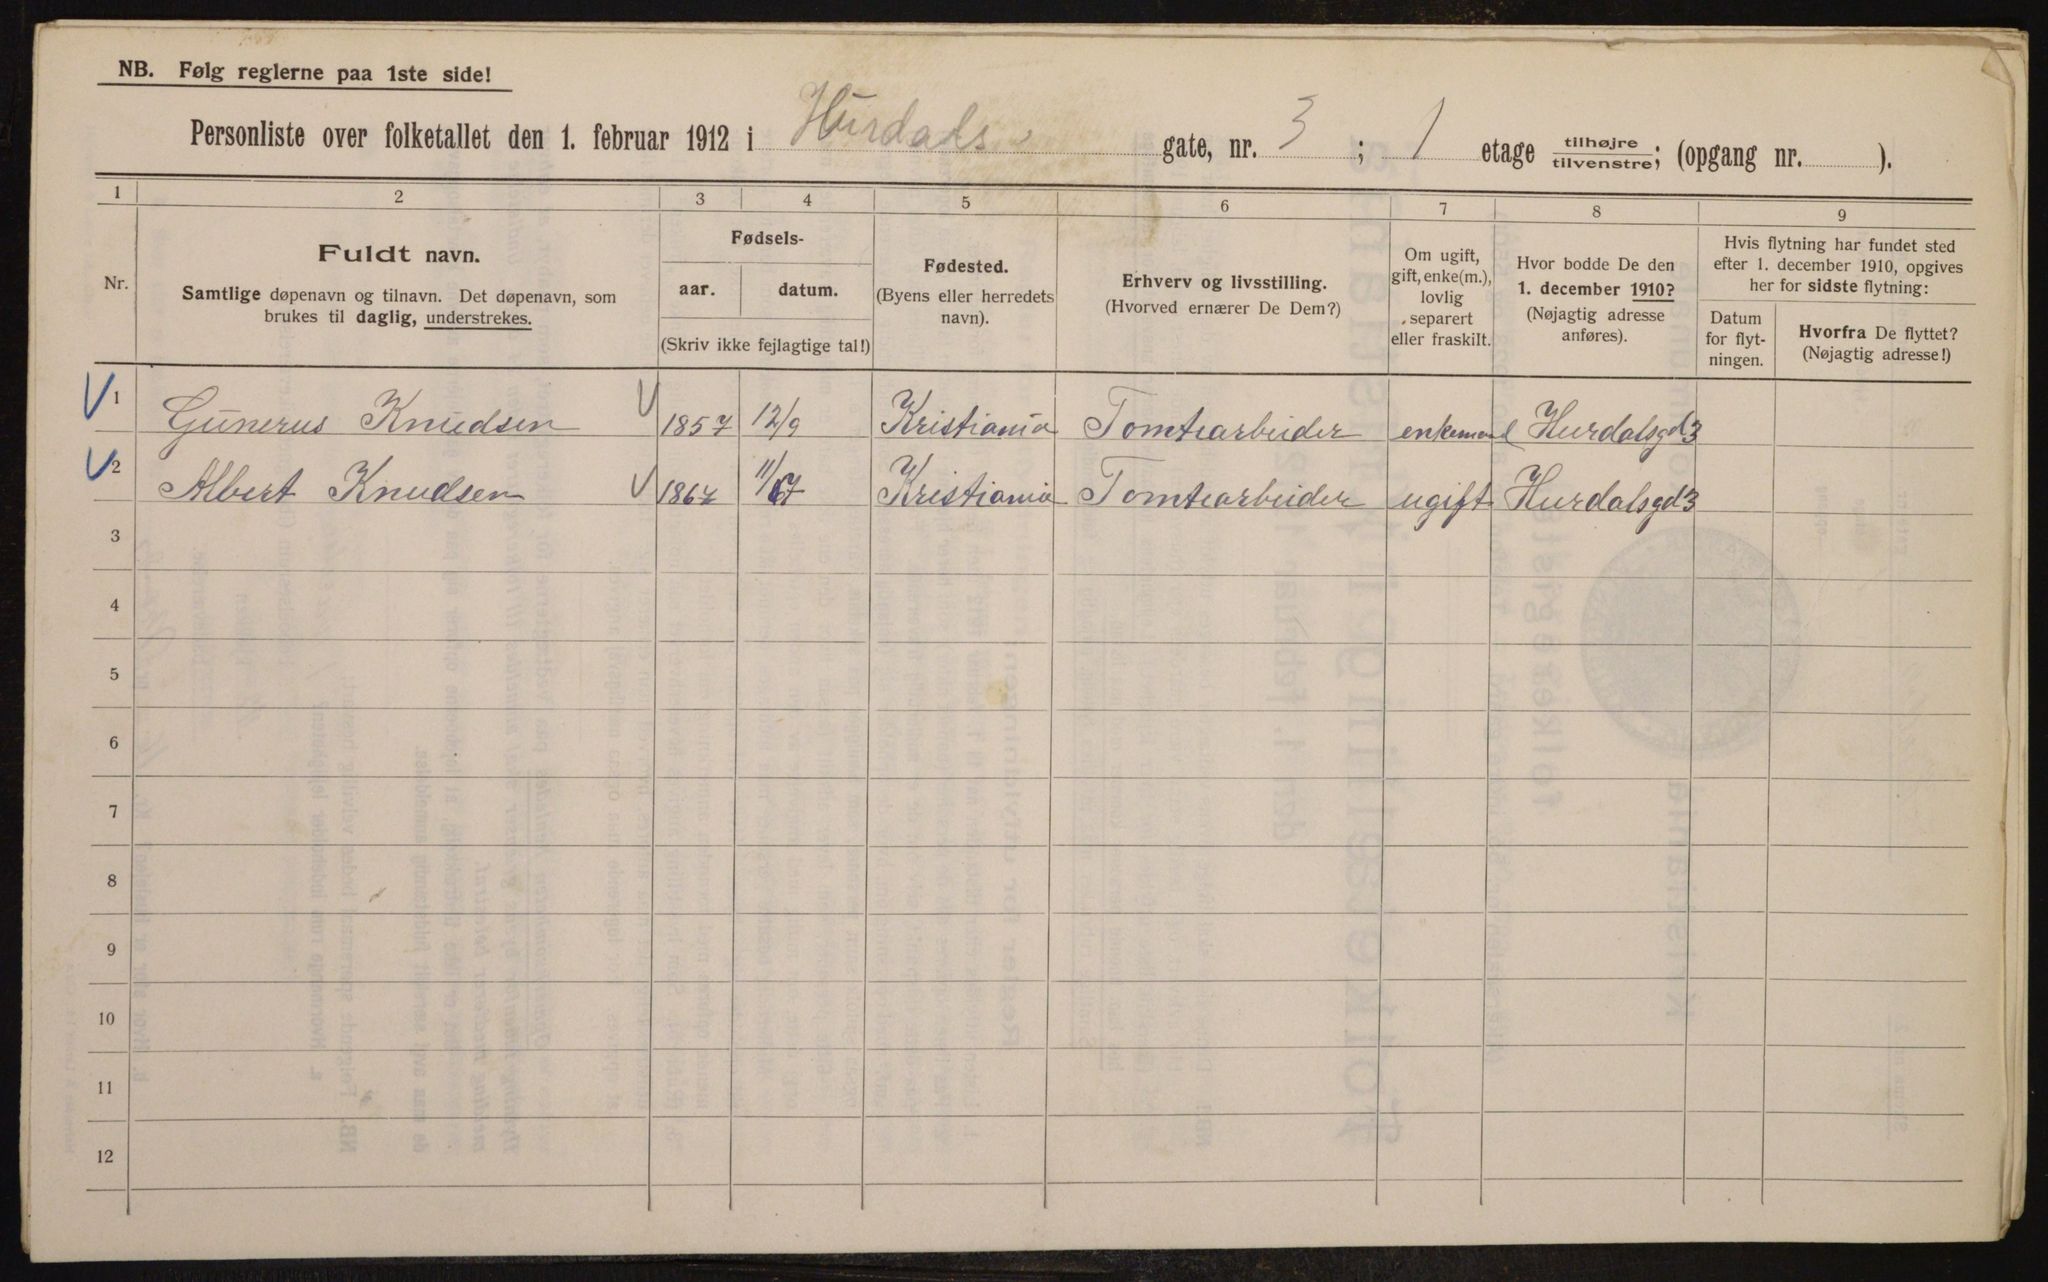 NB. Følg reglerne paa 1ste side!
Personliste over folketallet den 1. februar 1912 i Hurdals gate, nr. 3 ; 1 etage tilhøjre tilvenstre; (opgang nr. ).
1 2 3 4 5 6 7 8 9
Nr.
Fuldt navn.
Samtlige døpenavn og tilnavn. Det døpenavn, som
brukes til daglig, understrekes.
Fødsels-
aar. datum.
(Skriv ikke fejlagtige tal!)
Fødested.
(Byens eller herredets
navn).
Erhverv og livsstilling.
(Hvorved ernærer De Dem?)
Om ugift,
gift, enke(m.),
lovlig
separert
eller fraskilt.
Hvor bodde De den
1. december 1910?
(Nøjagtig adresse
anføres).
Hvis flytning har fundet sted
efter 1. december 1910, opgives
her for sidste flytning:
Datum
for flyt-
ningen.
Hvorfra De flyttet?
(Nøjagtig adresse!)
1 Gunerus Knudsen 1857 12/9 Kristiania Tomtearbeider enkeman Hurdalsgd 3
2 Albert Knudsen 1867 Kristiania Tomtearbeider ugift Hurdalsgd 3
3
4
5
6
7
8
9
10
11
12